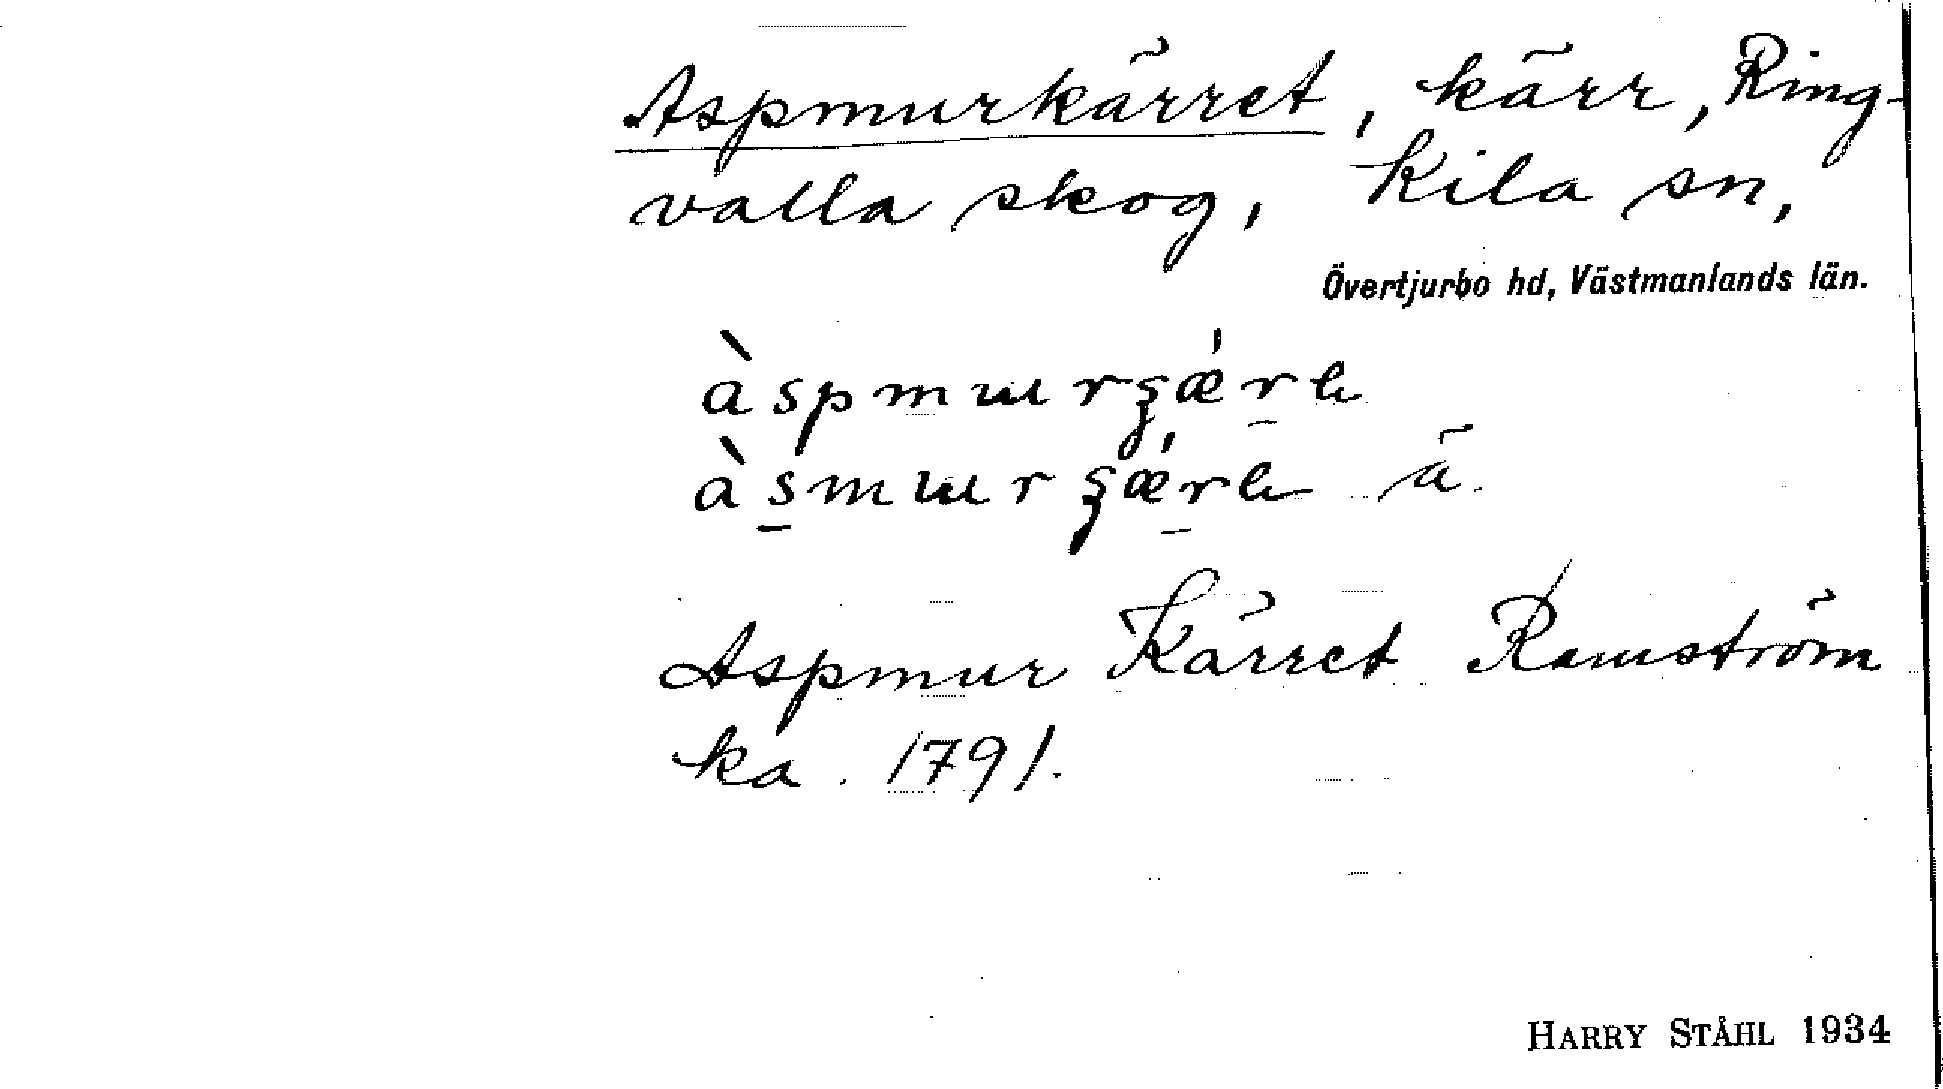 Aspmurkärret, kärr, Ring-
valla skog, Kila sn,
Övertjurbo hd, Västmanlands län.
àspmɯrʒǽrɐ
àsmɯrʒǽrɐ ä.
Aspmur Kärret Ramström
ka. 1791.
HARRY STÅHL 1934